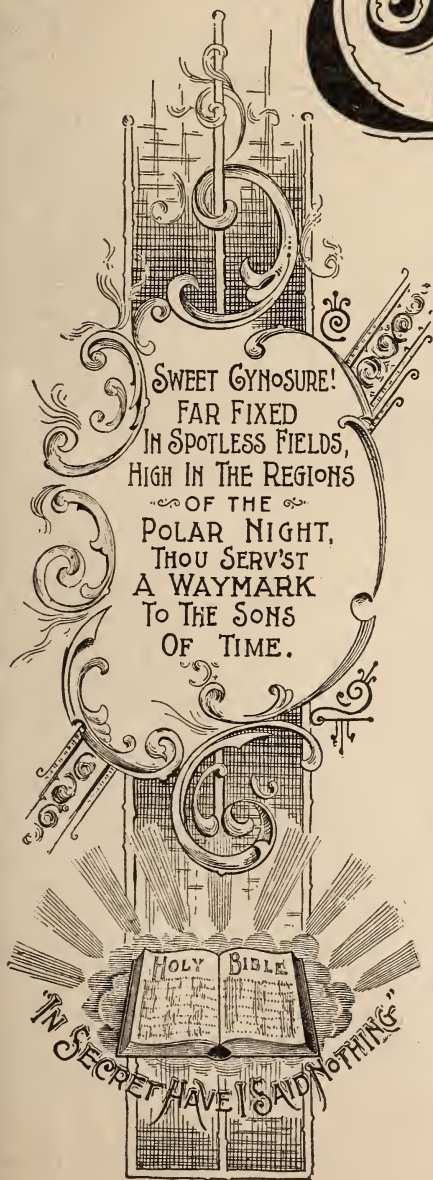 SWEET GYNOSURE!
FAR FIXED
IN SPOTLESS FIELDS,
HIGH IN THE REGIONS
OF THE
POLAR NIGHT,
THOU SERV'ST
A WAYMARK
TO THE SONS
OF TIME.
HOLY BIBLE
"IN SECRET HAVE I SAID NOTHING"